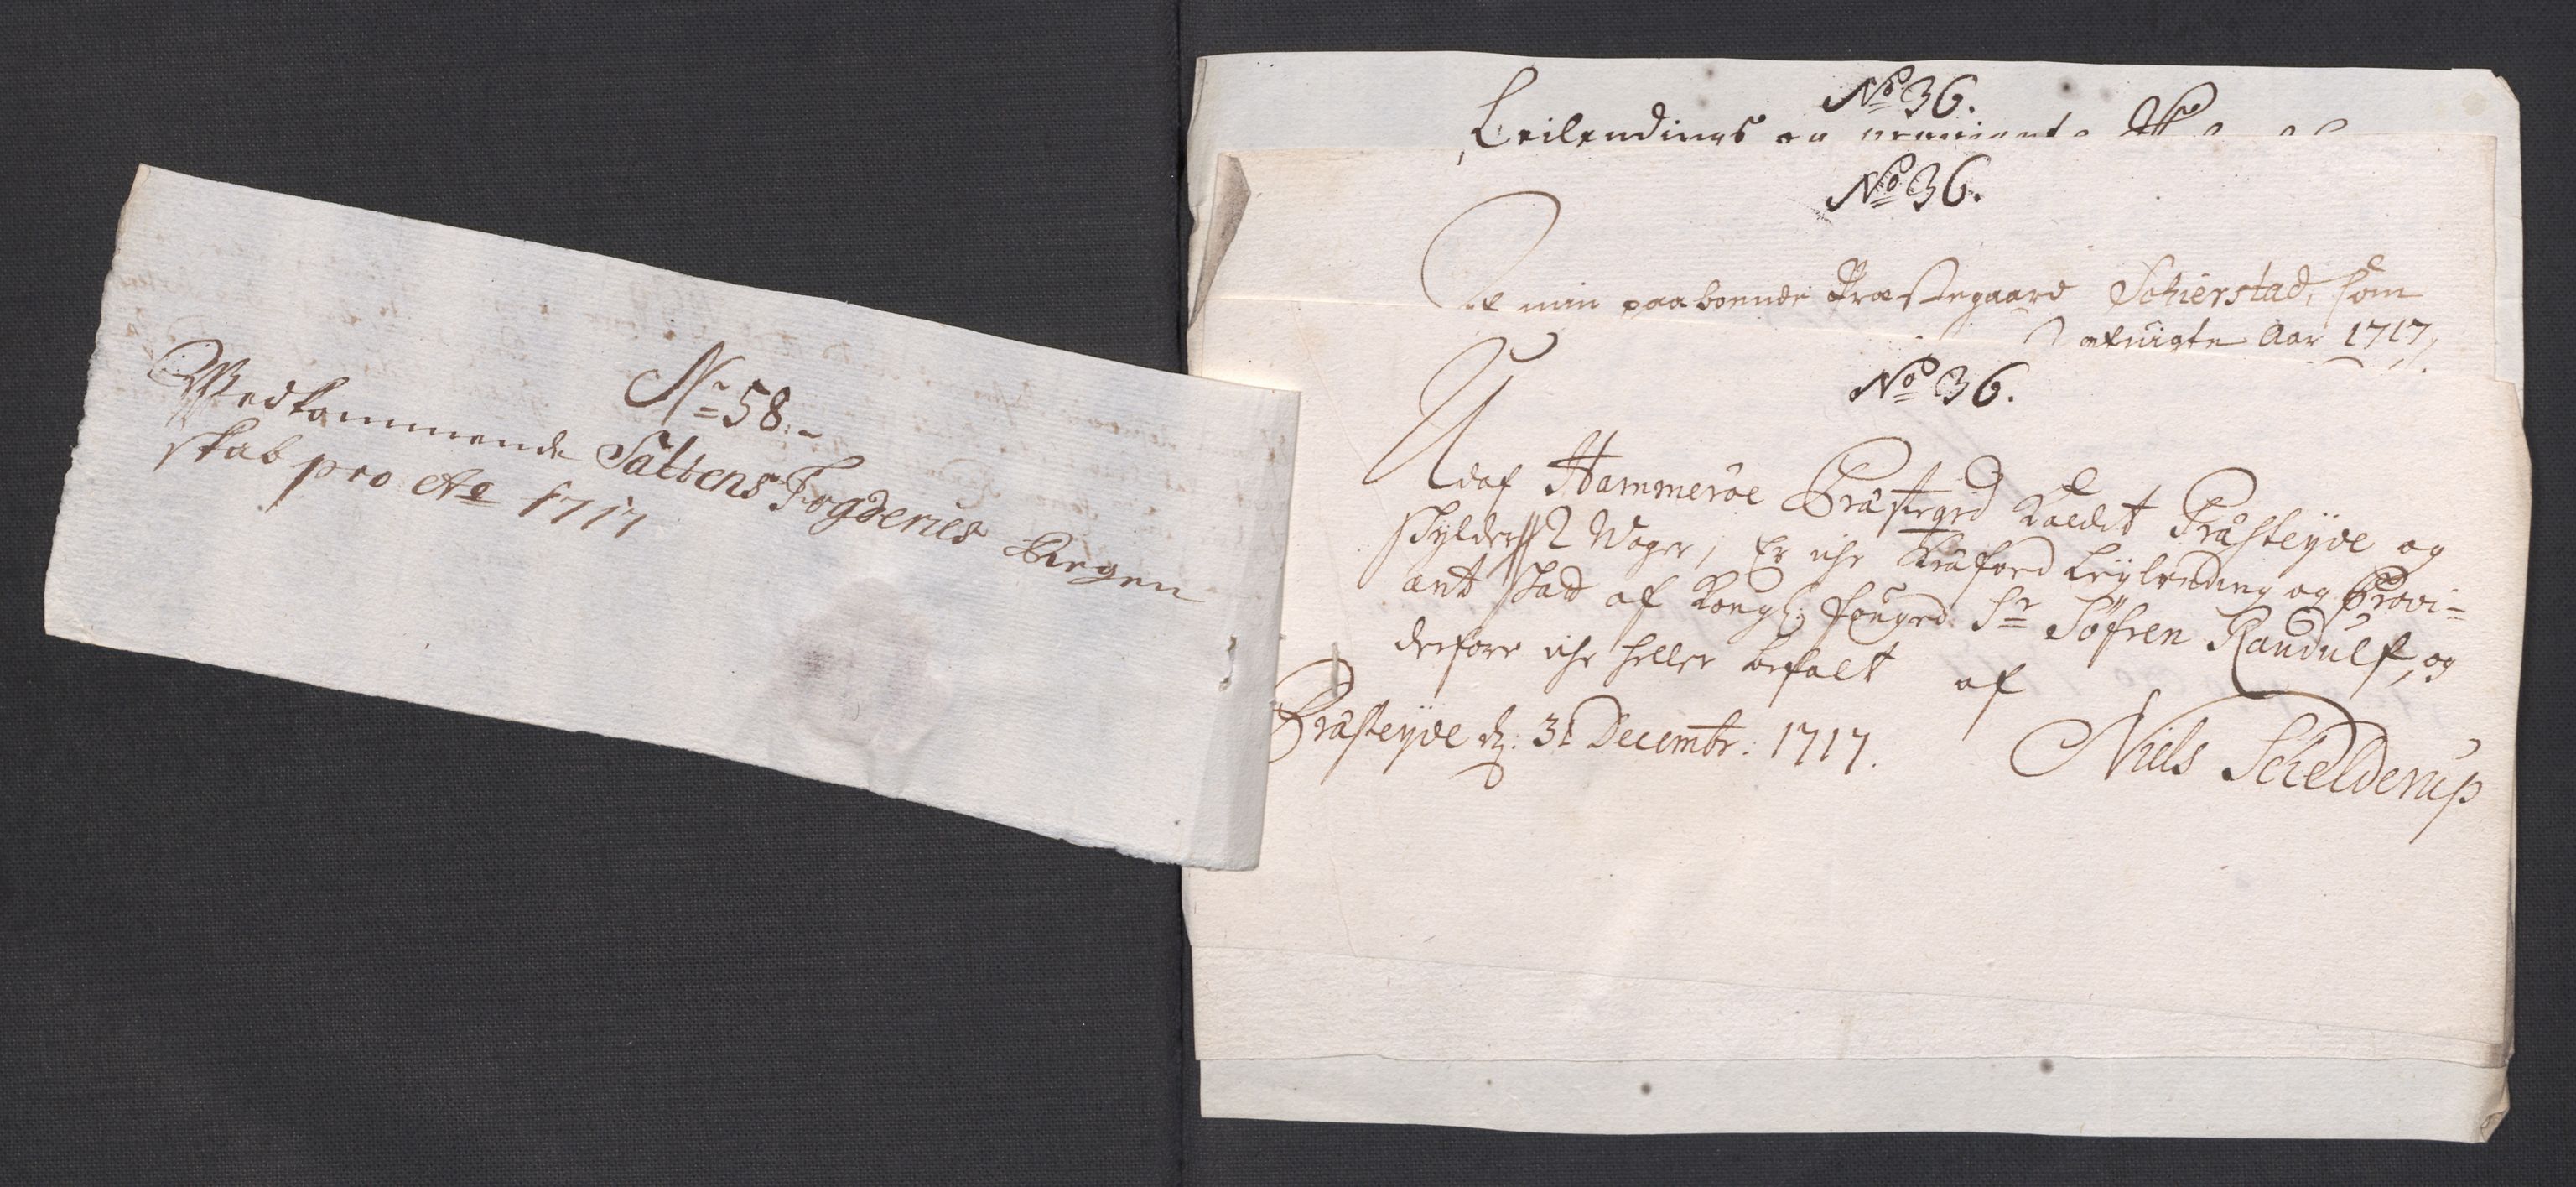 Nr 58.
Wedkommende Saltens Fogderies Regen
skab pro Ao 1717
No 36.
Leilendings og
No 36.
Af min paaboende Præstegaard Schierstad, som
Aar 1717,
No 36.
Udaf Hammerøe Præstegrd Kaldet Præsteyde og
skylder 2 Woger, Er iche Kræfved Leylending og Provi-
ant skat af Kongl: fouged Sr Søfren Randulf, og
derfore iche heller betalt af
Præsteyde d: 31 Decembr: 1717.
Niels Schelderup